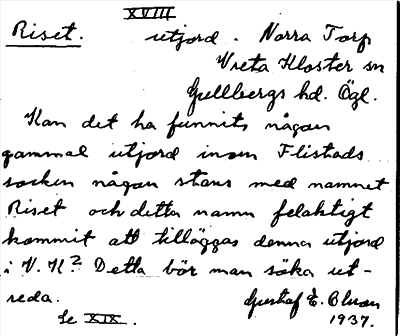 XVIII
Riset. utjord. Norra Torp
Vreta Kloster sn
Gullbergs hd. Ögl.
Kan det ha funnits någon
gammal utjord inom Flistads
socken någon stans med namnet
Riset och detta namn felaktigt
kommit att tilläggas denna utjord
i V. K? Detta bör man söka ut-
reda. Gustaf E. Olson
Se XIX. 1937.